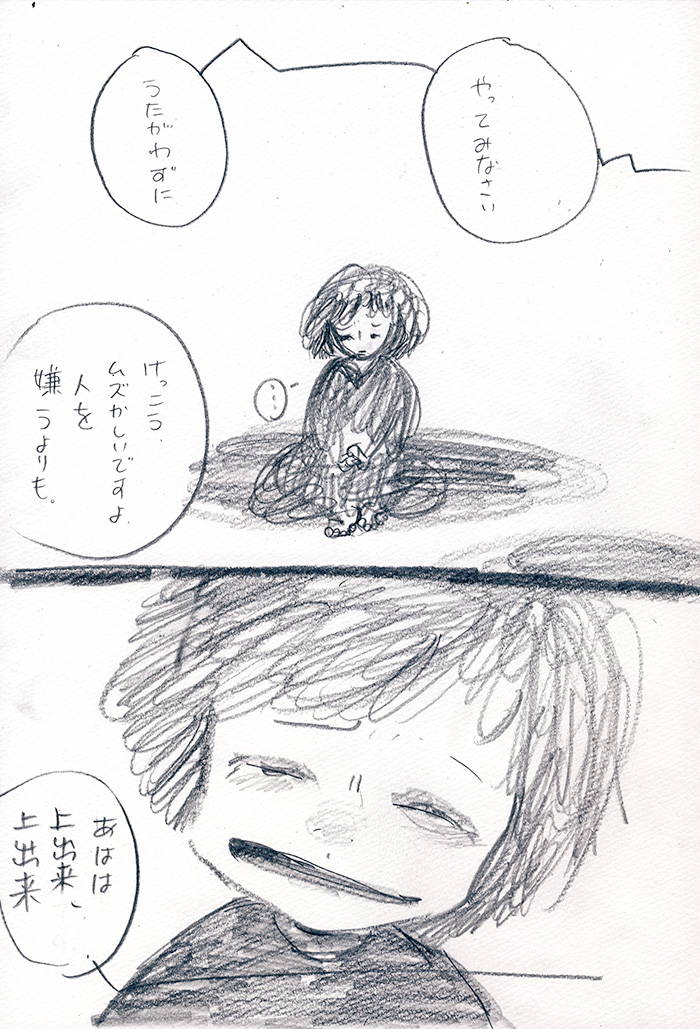 やってみなさい
うたがわずに
…
けっこう、
ムズかしいですよ
人を
嫌うよりも。
あはは
上出来、
上出来